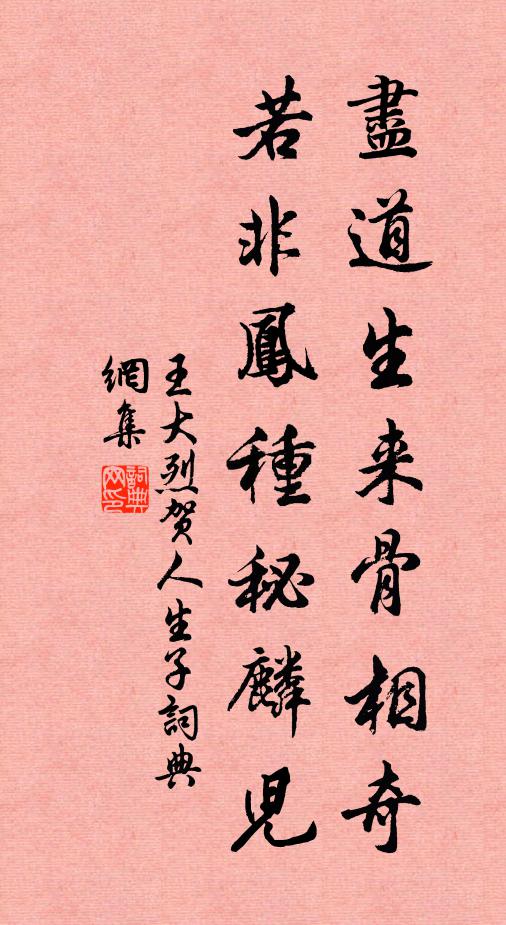 盡道生来骨相奇
若非鳳種秘麟児
王大烈贺人生子詞典
網集
詞典
网印